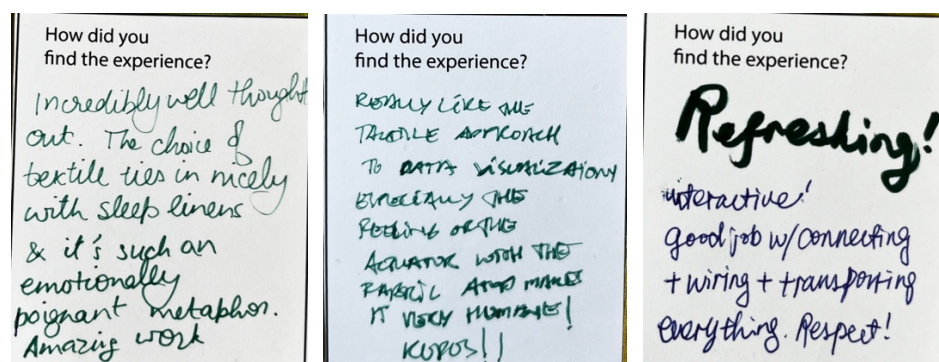 How did you
find the experience?
Incredibly well thought
out. The choice of
textile ties in nicely
with sleep linens
& it's such an
emotionally
poignant metaphor.
Amazing work
How did you
find the experience?
REALLY LIKE THE
TACTILE APPROACH
TO DATA VISUALIZATION
ESPECIALLY THE
FEELING OF THE
ACTUATOR WITH THE
FABRIC AND MAKES
IT VERY HUMANE!
KUDOS!!
How did you
find the experience?
Refreshing!
interactive!
good job w/ connecting
+ wiring + transporting
everything. Respect!